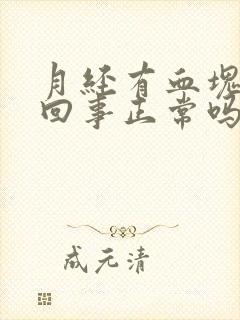 月经有血块
回事正常吗
成元清